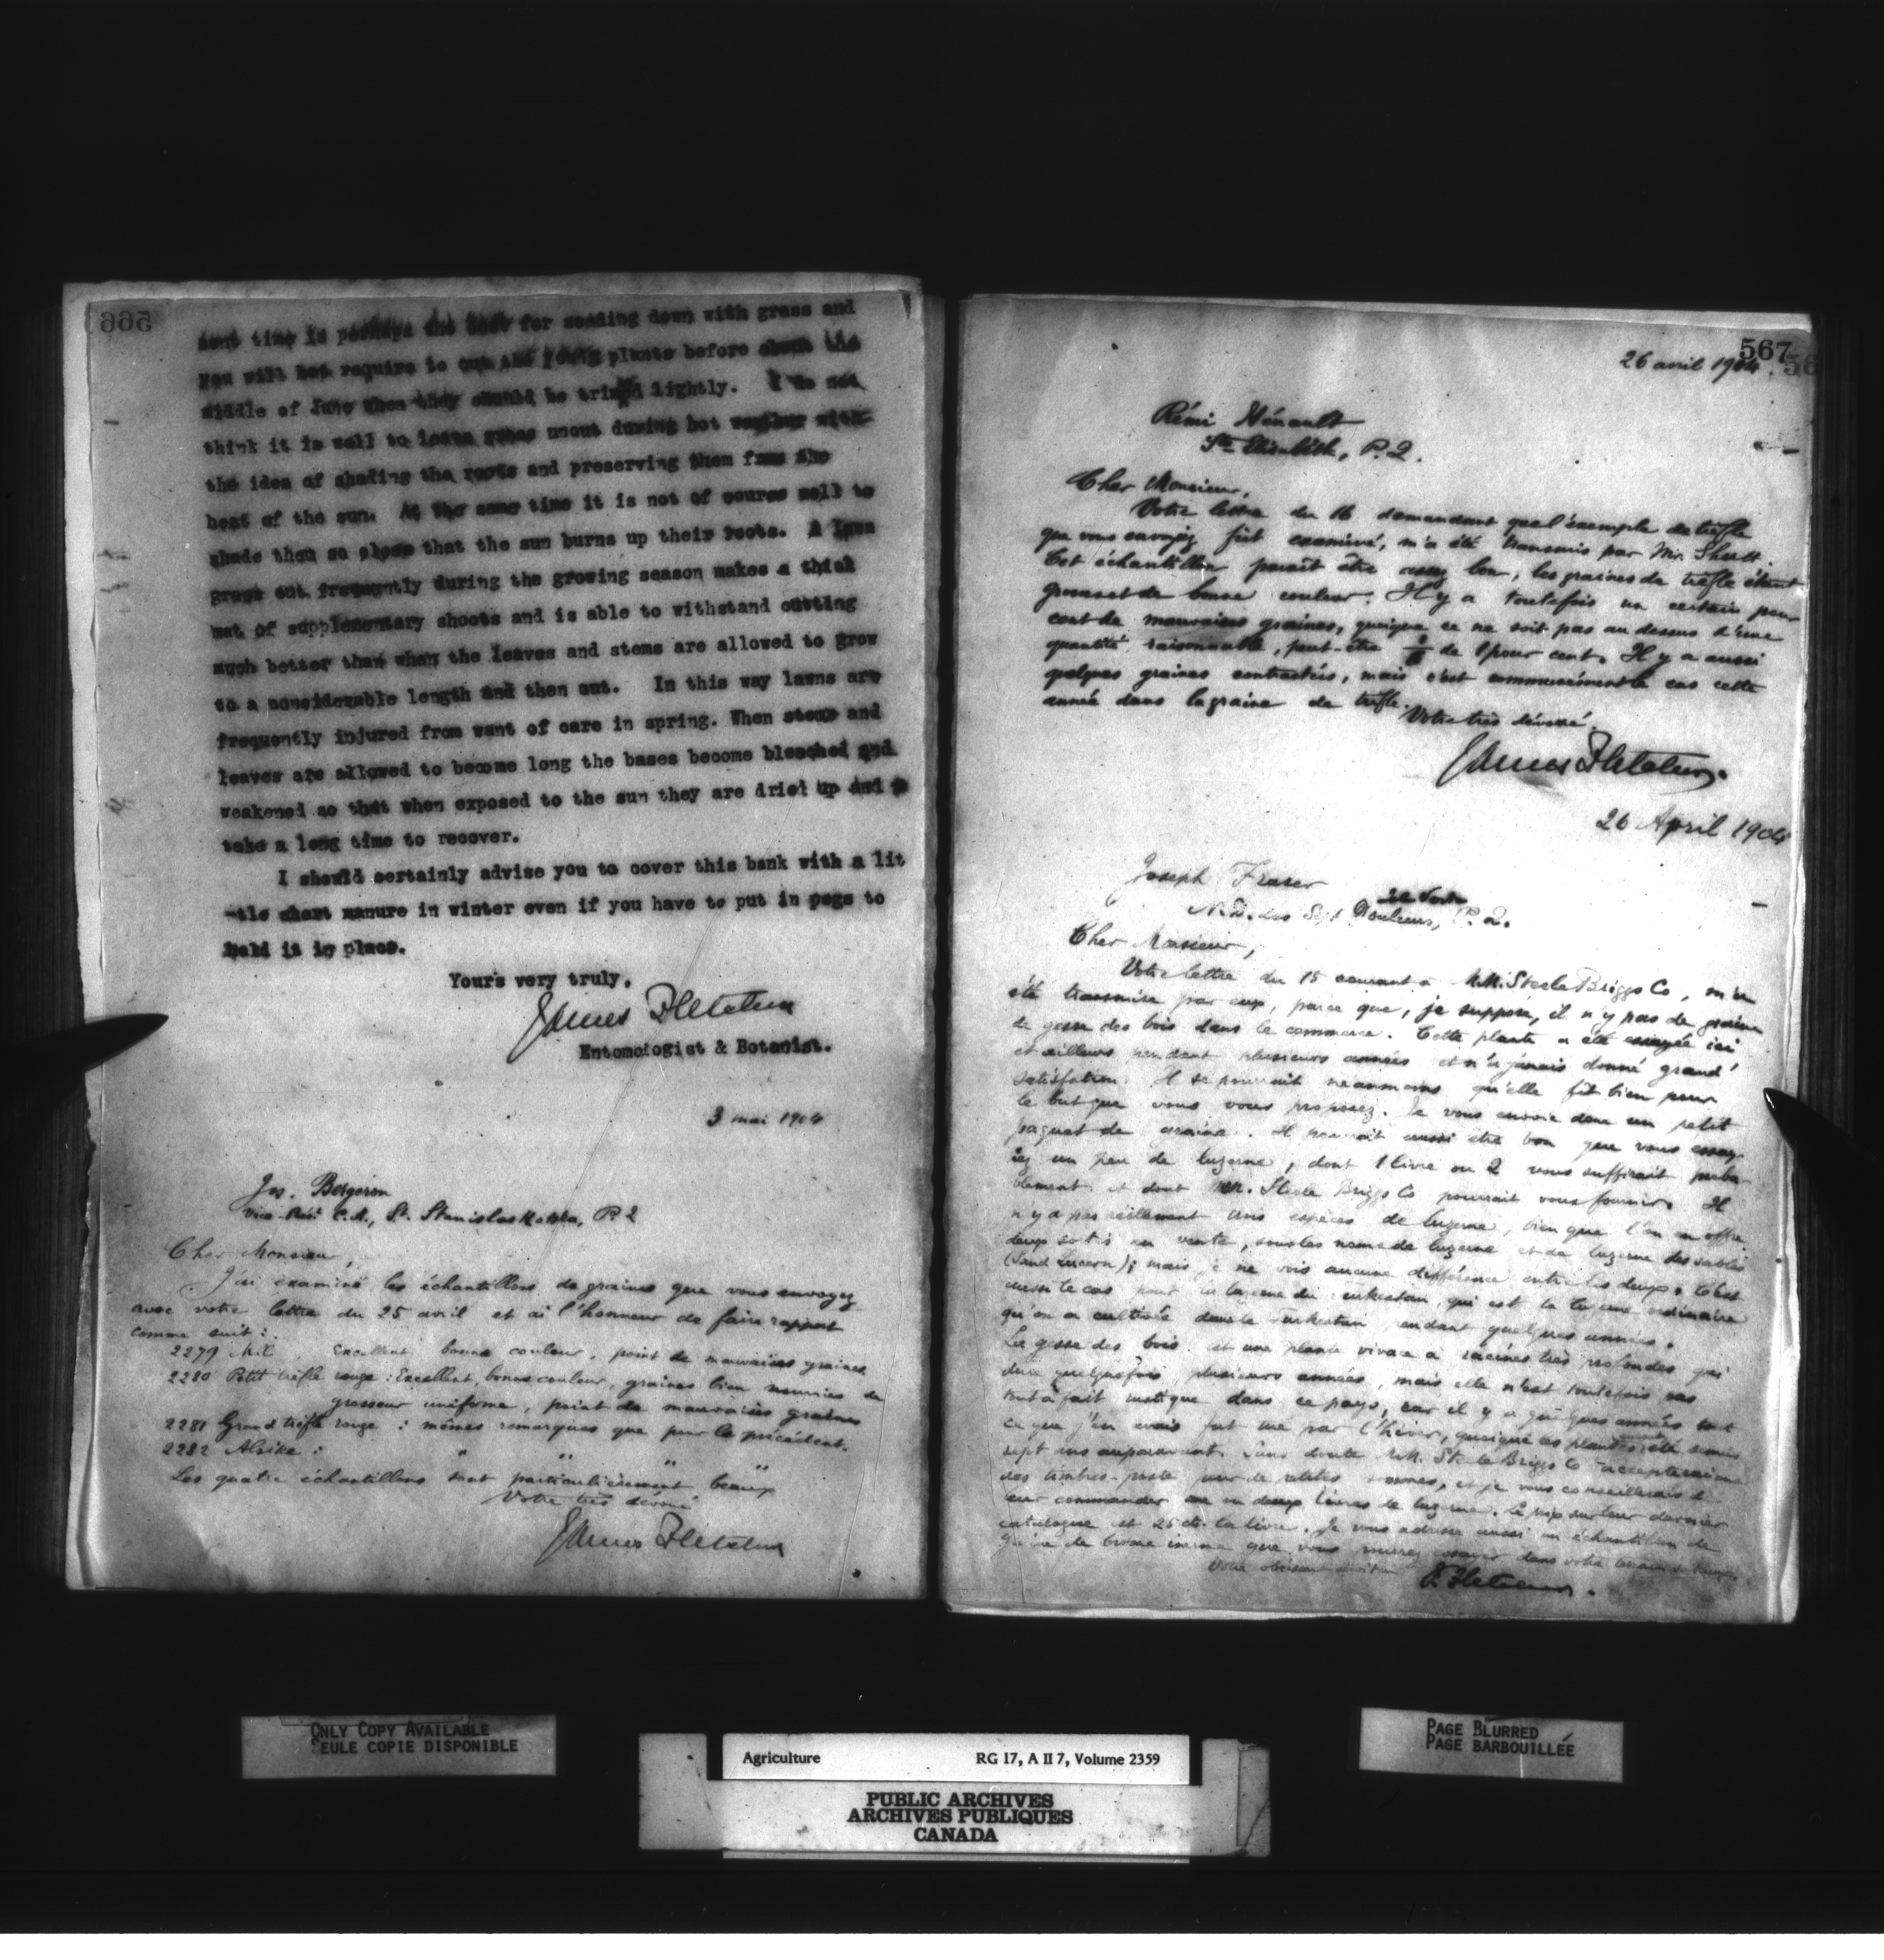 566
sent time is perhaps the best for seeding down with grass and
you will not require to cut the young plants before about the
middle of June when they should be trimed lightly. I do not
think it is well to leave grass uncut during hot weather with
the idea of shading the roots and preserving them from the
heat of the sun. At the same time it is not of course well to
shade them so close that the sun burns up their roots. A lawn
grass cut frequently during the growing season makes a thick
mat of supplementary shoots and is able to withstand cutting
much better than when the leaves and stems are allowed to grow
to a considerable length and then cut. In this way lawns are
frequently injured from want of care in spring. When stems and
leaves are allowed to become long the bases become bleached and
weakened so that when exposed to the sun they are dried up and
take a long time to recover.
I should certainly advise you to cover this bank with a lit
-tle short manure in winter even if you have to put in pegs to
hold it in place.
Yours very truly,
James Fletcher
Entomologist & Botanist.
3 mai 1904
Jos. Bergeron
Vice-Prés. C.A., St. Stanislas Kotska, P.Q
Cher Monsieur,
J'ai examiné les échantillons de graines que vous envoyez
avec votre lettre du 25 avril et ai l'honneur de faire rapport
comme suit:
2279 Mil. Excellent bonne couleur, point de mauvaises graines.
2280 Petit trèfle rouge: Excellent, bonne couleur, graines bien nourries de
grosseur uniforme, point de mauvaises graines
2281 Grand trèfle rouge: mêmes remarques que pour le précédent.
2282 Alsike: " " " "
Les quatre échantillons sont particulièrement beaux
Votre très dévoué
James Fletcher
567
26 avril 1904.
Rémi Hénault
Ste Elisabeth, P.Q.
Cher Monsieur,
Votre lettre du 16 demandant que l'exemple de trèfle
que vous envoyez fût examiné, m'a été transmis par Mr. Shutt.
Cet échantillon paraît être assez bon, les graines de trèfle étant
grosses et de bonne couleur. Il y a toutefois un certain pour
cent de mauvaises graines, quoique ce ne soit pas au dessus d'une
quantité raisonnable, peut-être de 1 pour cent. Il y a aussi
quelques graines contractées, mais c'est communément le cas cette
année dans la graine de trèfle.
Votre très dévoué.
James Fletcher.
26 April 1904
Joseph Fraser
Ile Verte
N.D. des Sept Douleurs, P.Q.
Cher Monsieur,
Votre lettre du 15 courant à M.M. Steele Briggs Co, m'a
été transmise par eux, parce que, je suppose, il n'y pas de graine
de gesse des bois dans le commerce. Cette plante a été essayée ici
et ailleurs pendant plusieurs années et n'a jamais donné grand'
satisfation. Il se pourrait neanmoins qu'elle fût bien pour
le but que vous vous proposez. Je vous envoie donc un petit
paquet de graine. Il pourrait aussi être bon que vous essay-
iez un peu de luzerne, dont 1 livre ou 2 vous suffirait proba-
blement et dont MM. Steele Briggs Co pourrait vous fournir. Il
n'y a pas réellement espèces de luzerne, bien que l'on en offre
deux sortes en vente, sous les noms de luzerne et de luzerne des sables
(Sand Lucern); mais je ne vois aucune différence entre les deux. C'est
aussi le cas pour la luzerne du Turkestan, qui est la luzerne ordinaire
qu'on a cultivée dans le Turkestan pendant quelques années.
La gesse des bois est une plante vivace à racines très profondes qui
dure quelquefois plusieurs années, mais elle n'est toutefois pas
tout à fait rustique dans ce pays, car il y a quelques années tout
ce que j'en avais fut tué par l'hiver, quoique ces plantes été semées
sept ans auparavant. Sans doute MM. Steele Briggs Co accepteraient
des timbres-poste pour de petites sommes, et je vous conseillerais de
leur commander une ou deux livres de luzerne. Le prix sur leur dernier
catalogue est 25 cts. la livre. Je vous adresse aussi un échantillon de
graine de brome inerme que vous pourrez essayer dans votre
Votre obéissant serviteur
J. Fletcher.
ONLY COPY AVAILABLE
SEULE COPIE DISPONIBLE
Agriculture RG 17, A II 7, Volume 2359
PUBLIC ARCHIVES
ARCHIVES PUBLIQUES
CANADA
PAGE BLURRED
PAGE BARBOUILLÉE